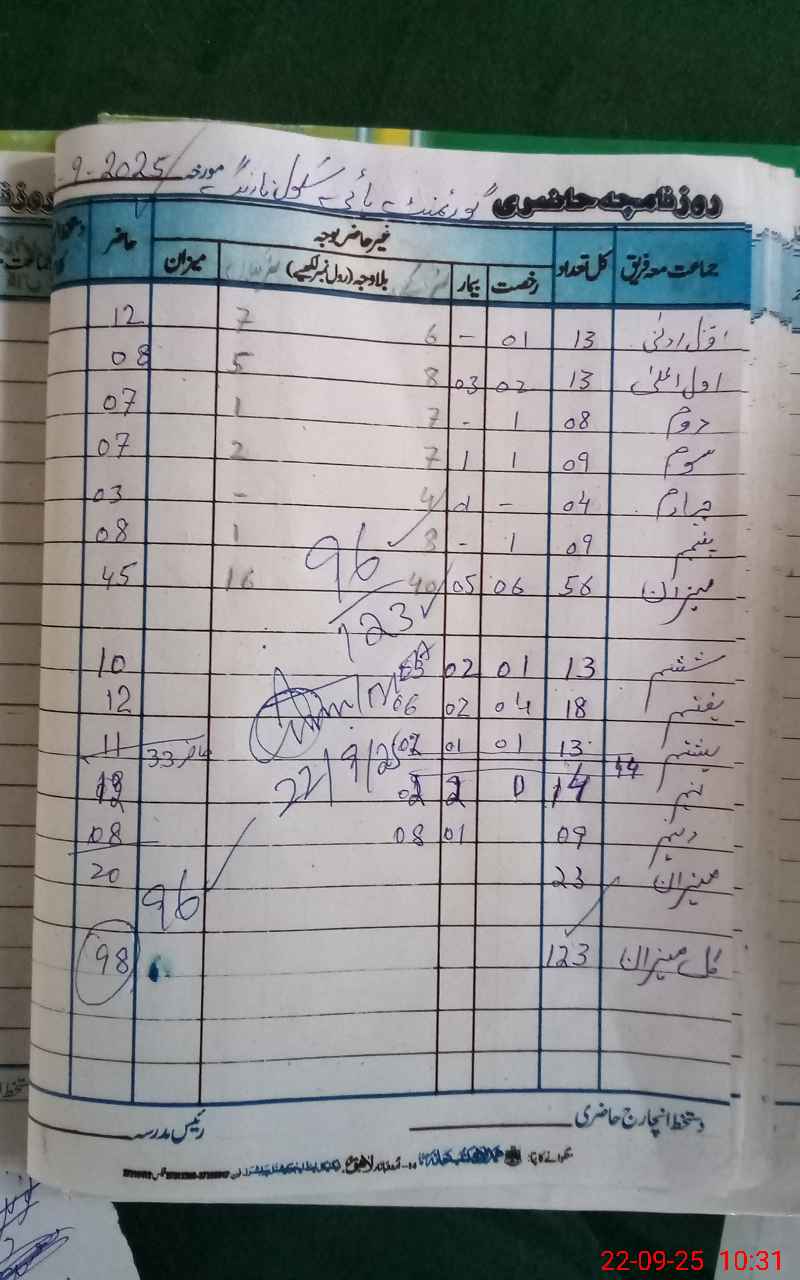 روزنامچہ حاضری "گورنمنٹ ہائی سکول نازنہ" مورخہ 9-2025
جماعت معہ فریق کل تعداد غیر حاضر بوجہ حاضر
رخصت بیمار بلاوجہ (رول نمبر لکھیے) میزان
اول ادنیٰ 13 01 - 6 7 12
اول اعلیٰ 13 02 03 8 5 08
دوم 08 1 - 7 1 07
سوم 09 1 1 7 2 07
چہارم 04 - 4 - 03
پنجم 09 1 - 8 1 08
96
میزان 56 06 05 40 16 45
123
ششم 13 01 02 10
ہفتم 18 04 02 06 12
ہشتم 13 01 01 حاضر 33 11
22/9/25
نہم 14
دہم 09 01 08 08
میزان 23 20
96
کل میزان 123 98
دستخط انچارج حاضری رئیس مدرسہ
22-09-25 10:31